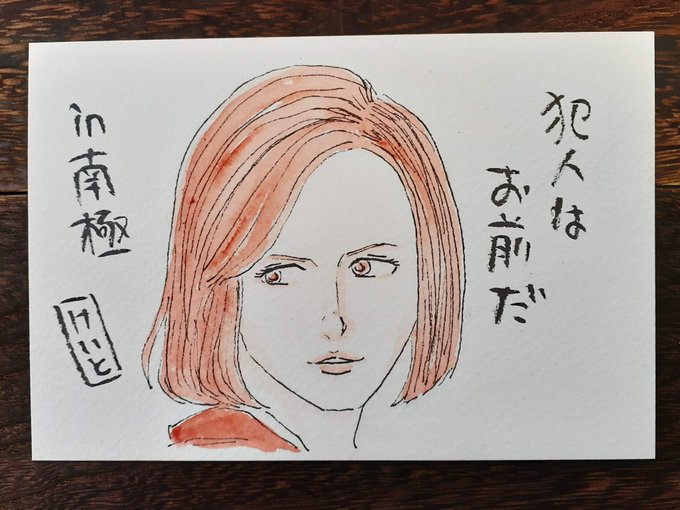 犯人は
お前だ
in南極
けいと